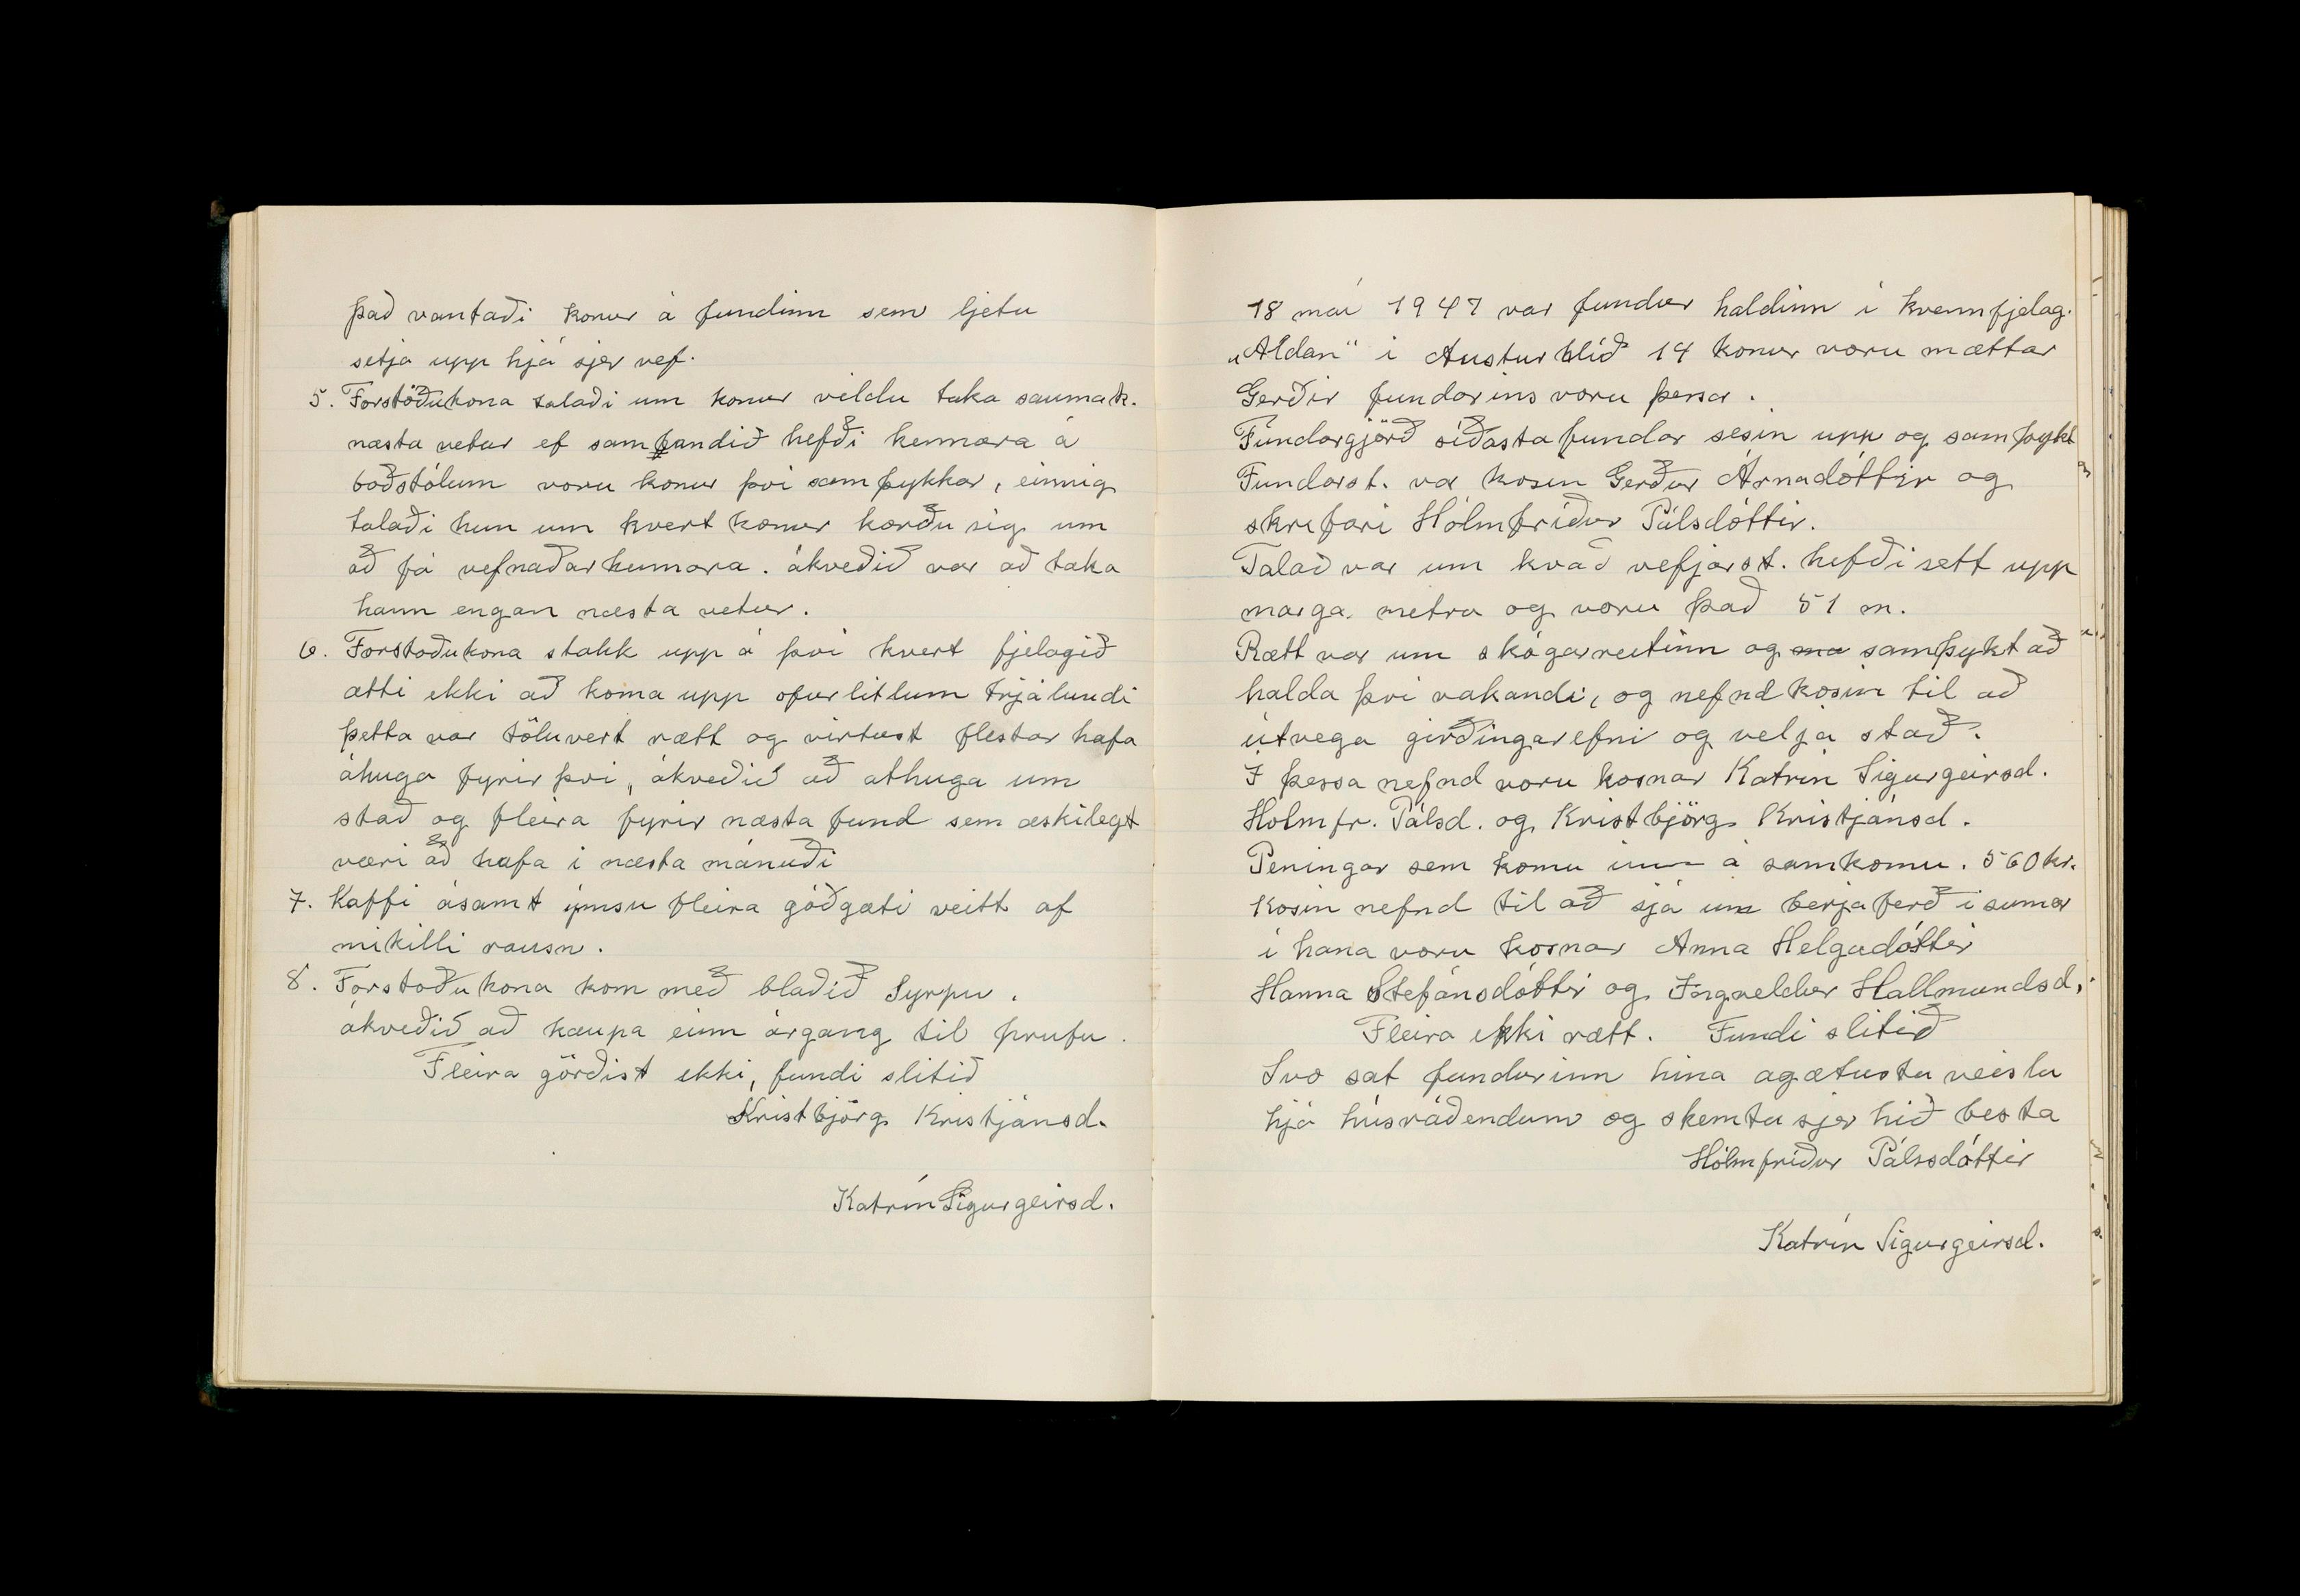 það vantaði konur á fundinn sem ljetu
setja upp hjá sjer vef.
5. Forstöðukona talaði um konur vildu taka saumak.
næsta vetur ef sambandið hefði kennara á
boðstólum voru konur því samþykkar, einnig
talaði hun um hvert konur kærðu sig um
að fá vefnaðarkennara. ákveðið var að taka
hann engan næsta vetur.
6. Forstoðukona stakk upp á því hvert fjelagið
ætti ekki að koma upp ofurlitlum trjálundi
þetta var töluvert rætt og virtust flestar hafa
áhuga fyrir því, ákveðið að athuga um
stað og fleira fyrir næsta fund sem æskilegt
væri að hafa i næsta mánuði
7. Kaffi ásamt ýmsu fleira góðgæti veitt af
mikilli rausn.
8. Forstoðukona kom með blaðið Syrpu.
ákveðið að kaupa einn árgang til prufu.
Fleira görðist ekki, fundi slitið
Kristbjörg Kristjánsd.
Katrín Sigurgeirsd.
18 mai 1947 var fundur haldinn i kvennfjelag.
„Aldan" i Austurhlíð 14 konur voru mættar
Gerðir fundarins voru þessar.
Fundargjörð síðasta fundar lesin upp og samþykt
Fundarst. var kosin Gerður Árnadóttir og
skrifari Hólmfríður Pálsdóttir.
Talað var um hvað vefjarst. hefði sett upp
marga metra og voru það 51 m.
Rætt var um skógarreitinn og samþykt að
halda því vakandi, og nefnd kosin til að
útvega girðingarefni og velja stað.
I þessa nefnd voru kosnar Katrin Sigurgeirsd.
Holmfr. Pálsd. og Kristbjörg Kristjánsd.
Peningar sem komu inn á samkomu. 560 kr.
Kosin nefnd til að sjá um berjaferð i sumar
i hana voru kosnar Anna Helgadóttir
Hanna Stefánsdóttir og Ingveldur Hallmundsd.
Fleira ekki rætt. Fundi slitið
Svo sat fundurinn hina agætustu veislu
hjá húsráðendum og skemtu sjer hið besta
Hólmfríður Pálsdóttir
Katrín Sigurgeirsd.